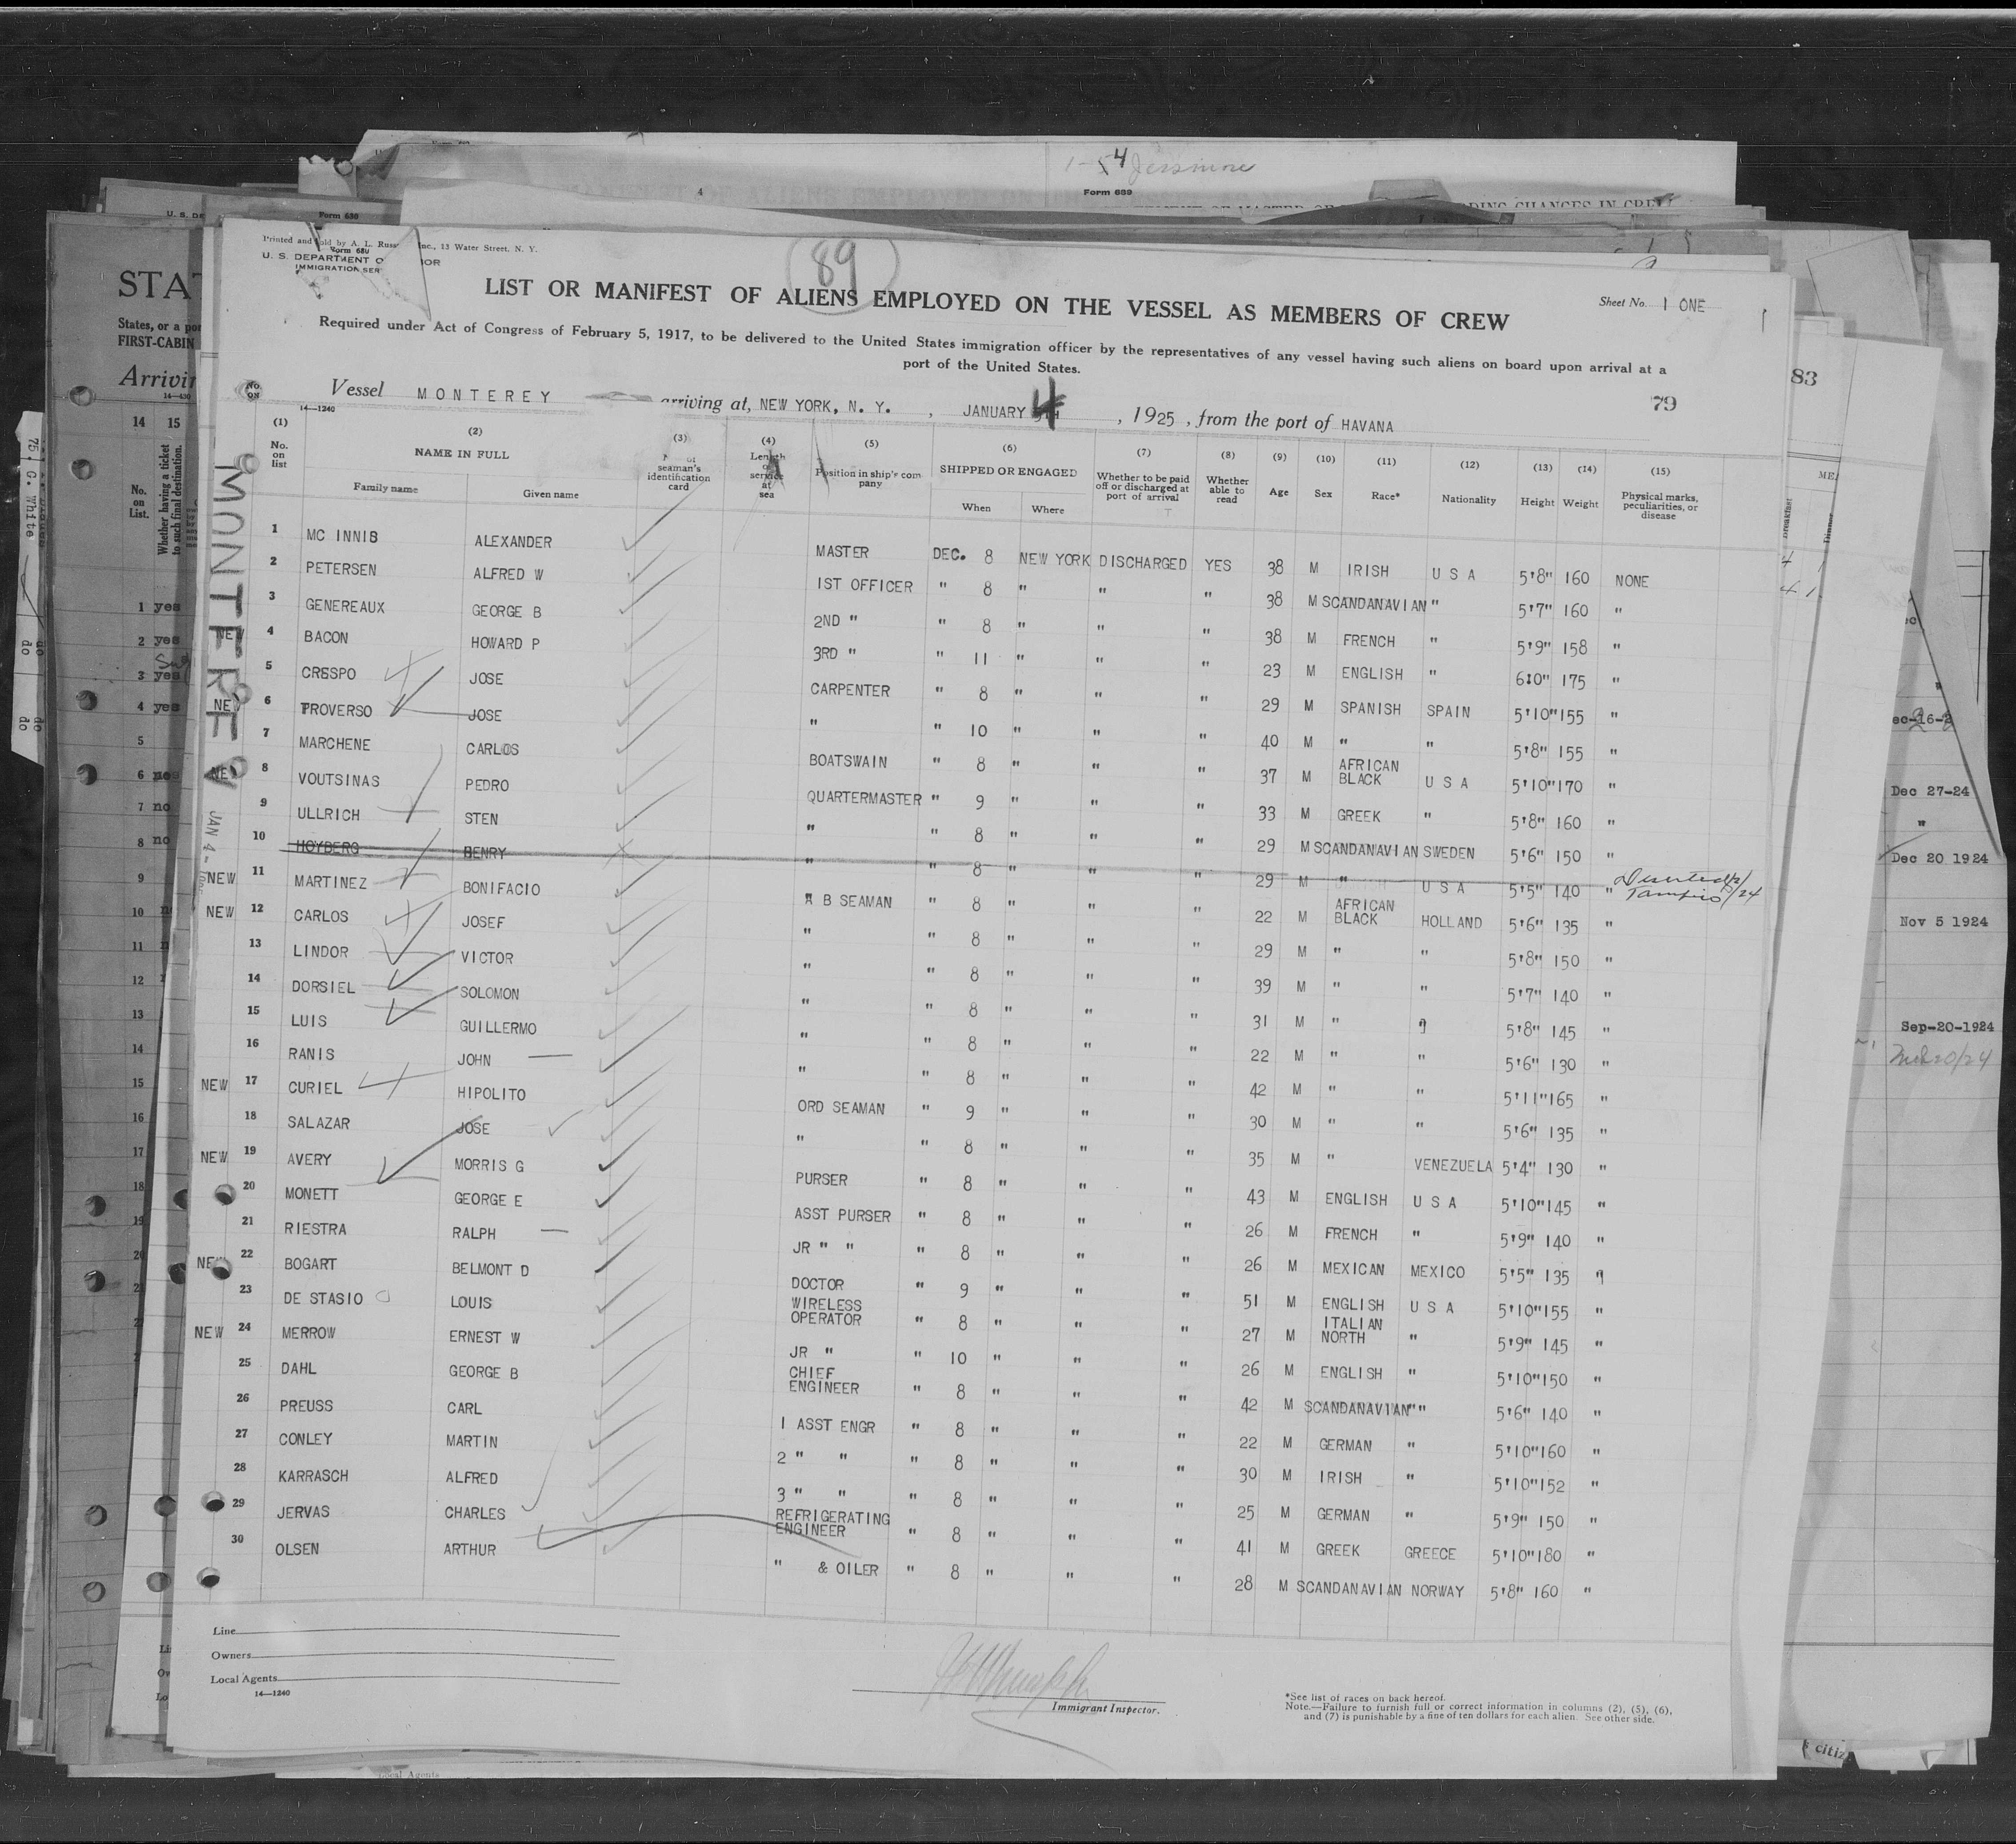 1-54 Jersmore
4 Form 689
Form 630
Printed and sold by A. L. Russ Inc., 13 Water Street, N. Y.
Form 680
U. S. DEPARTMENT O
IMMIGRATION SER
89
LIST OR MANIFEST OF ALIENS EMPLOYED ON THE VESSEL AS MEMBERS OF CREW
Sheet No. 1 ONE
Required under Act of Congress of February 5, 1917, to be delivered to the United States immigration officer by the representatives of any vessel having such aliens on board upon arrival at a
port of the United States.
Vessel MONTEREY arriving at, NEW YORK, N. Y. , JANUARY 4 , 1925 , from the port of HAVANA
79
14—1240
(1) No. on list (2) NAME IN FULL Family name Given name (3) seaman's identification card (4) Length of service at sea (5) Position in ship's company (6) SHIPPED OR ENGAGED When Where (7) Whether to be paid off or discharged at port of arrival (8) Whether able to read (9) Age (10) Sex (11) Race* (12) Nationality (13) Height (14) Weight (15) Physical marks, peculiarities, or disease
MONTEREY JAN 4-
1 MC INNIS ALEXANDER MASTER DEC. 8 NEW YORK DISCHARGED YES 38 M IRISH U S A 5'8" 160 NONE
2 PETERSEN ALFRED W 1ST OFFICER " 8 " " " 38 M SCANDANAVIAN " 5'7" 160 "
3 GENEREAUX GEORGE B 2ND " " 8 " " " 38 M FRENCH " 5'9" 158 "
NEW 4 BACON HOWARD P 3RD " " 11 " " " 23 M ENGLISH " 6:0" 175 "
5 CRESPO JOSE CARPENTER " 8 " " " 29 M SPANISH SPAIN 5'10" 155 "
NEW 6 PROVERSO JOSE " " 10 " " " 40 M " " 5'8" 155 "
7 MARCHENE CARLOS BOATSWAIN " 8 " " " 37 M AFRICAN BLACK U S A 5'10" 170 "
NEW 8 VOUTSINAS PEDRO QUARTERMASTER " 9 " " " 33 M GREEK " 5'8" 160 "
9 ULLRICH STEN " " 8 " " " 29 M SCANDANAVIAN SWEDEN 5'6" 150 "
10 HOYBERG HENRY " " 8 " " " 29 M " U S A 5'5" 140 " Deserted Tampico /24
NEW 11 MARTINEZ BONIFACIO A B SEAMAN " 8 " " " 22 M AFRICAN BLACK HOLLAND 5'6" 135 "
NEW 12 CARLOS JOSEF " " 8 " " " 29 M " " 5'8" 150 "
13 LINDOR VICTOR " " 8 " " " 39 M " " 5'7" 140 "
14 DORSIEL SOLOMON " " 8 " " " 31 M " " 5'8" 145 "
15 LUIS GUILLERMO " " 8 " " " 22 M " " 5'6" 130 "
16 RANIS JOHN " " 8 " " " 42 M " " 5'11" 165 "
NEW 17 CURIEL HIPOLITO ORD SEAMAN " 9 " " " 30 M " " 5'6" 135 "
18 SALAZAR JOSE " " 8 " " " 35 M " VENEZUELA 5'4" 130 "
NEW 19 AVERY MORRIS G PURSER " 8 " " " 43 M ENGLISH U S A 5'10" 145 "
20 MONETT GEORGE E ASST PURSER " 8 " " " 26 M FRENCH " 5'9" 140 "
21 RIESTRA RALPH JR " " " 8 " " " 26 M MEXICAN MEXICO 5'5" 135 "
NEW 22 BOGART BELMONT D DOCTOR " 9 " " " 51 M ENGLISH U S A 5'10" 155 "
23 DE STASIO LOUIS WIRELESS OPERATOR " 8 " " " 27 M ITALIAN NORTH " 5'9" 145 "
NEW 24 MERROW ERNEST W JR " " 10 " " " 26 M ENGLISH " 5'10" 150 "
25 DAHL GEORGE B CHIEF ENGINEER " 8 " " " 42 M SCANDANAVIAN " " 5'6" 140 "
26 PREUSS CARL 1 ASST ENGR " 8 " " " 22 M GERMAN " 5'10" 160 "
27 CONLEY MARTIN 2 " " " 8 " " " 30 M IRISH " 5'10" 152 "
28 KARRASCH ALFRED 3 " " " 8 " " " 25 M GERMAN " 5'9" 150 "
29 JERVAS CHARLES REFRIGERATING ENGINEER " 8 " " " 41 M GREEK GREECE 5'10" 180 "
30 OLSEN ARTHUR " & OILER " 8 " " " 28 M SCANDANAVIAN NORWAY 5'8" 160 "
Line
Owners
Local Agents
14—1240
Immigrant Inspector.
*See list of races on back hereof.
Note.—Failure to furnish full or correct information in columns (2), (5), (6),
and (7) is punishable by a fine of ten dollars for each alien. See other side.
STA
States, or a por
FIRST-CABIN
Arrivin
14—430
14 15
No. on List.
Whether having a ticket to such final destination.
1 yes
2 yes
3 yes
4 yes
5
6 no
7 no
8 no
9
10
11
12
13
14
15
16
17
18
19
20
75. G. White
do do
do do
83
Breakfast
Dinner
ec-16-2
Dec 27-24
"
Dec 20 1924
Nov 5 1924
Sep-20-1924
citiz
Local Agents